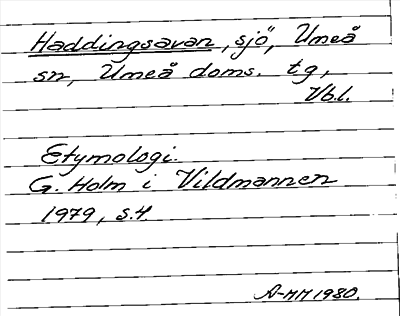 Haddingsavan, sjö, Umeå
sn, Umeå doms. tg,
Vbl.
Etymologi.
G. Holm i Vildmannen
1979, s.4.
A-MM 1980.